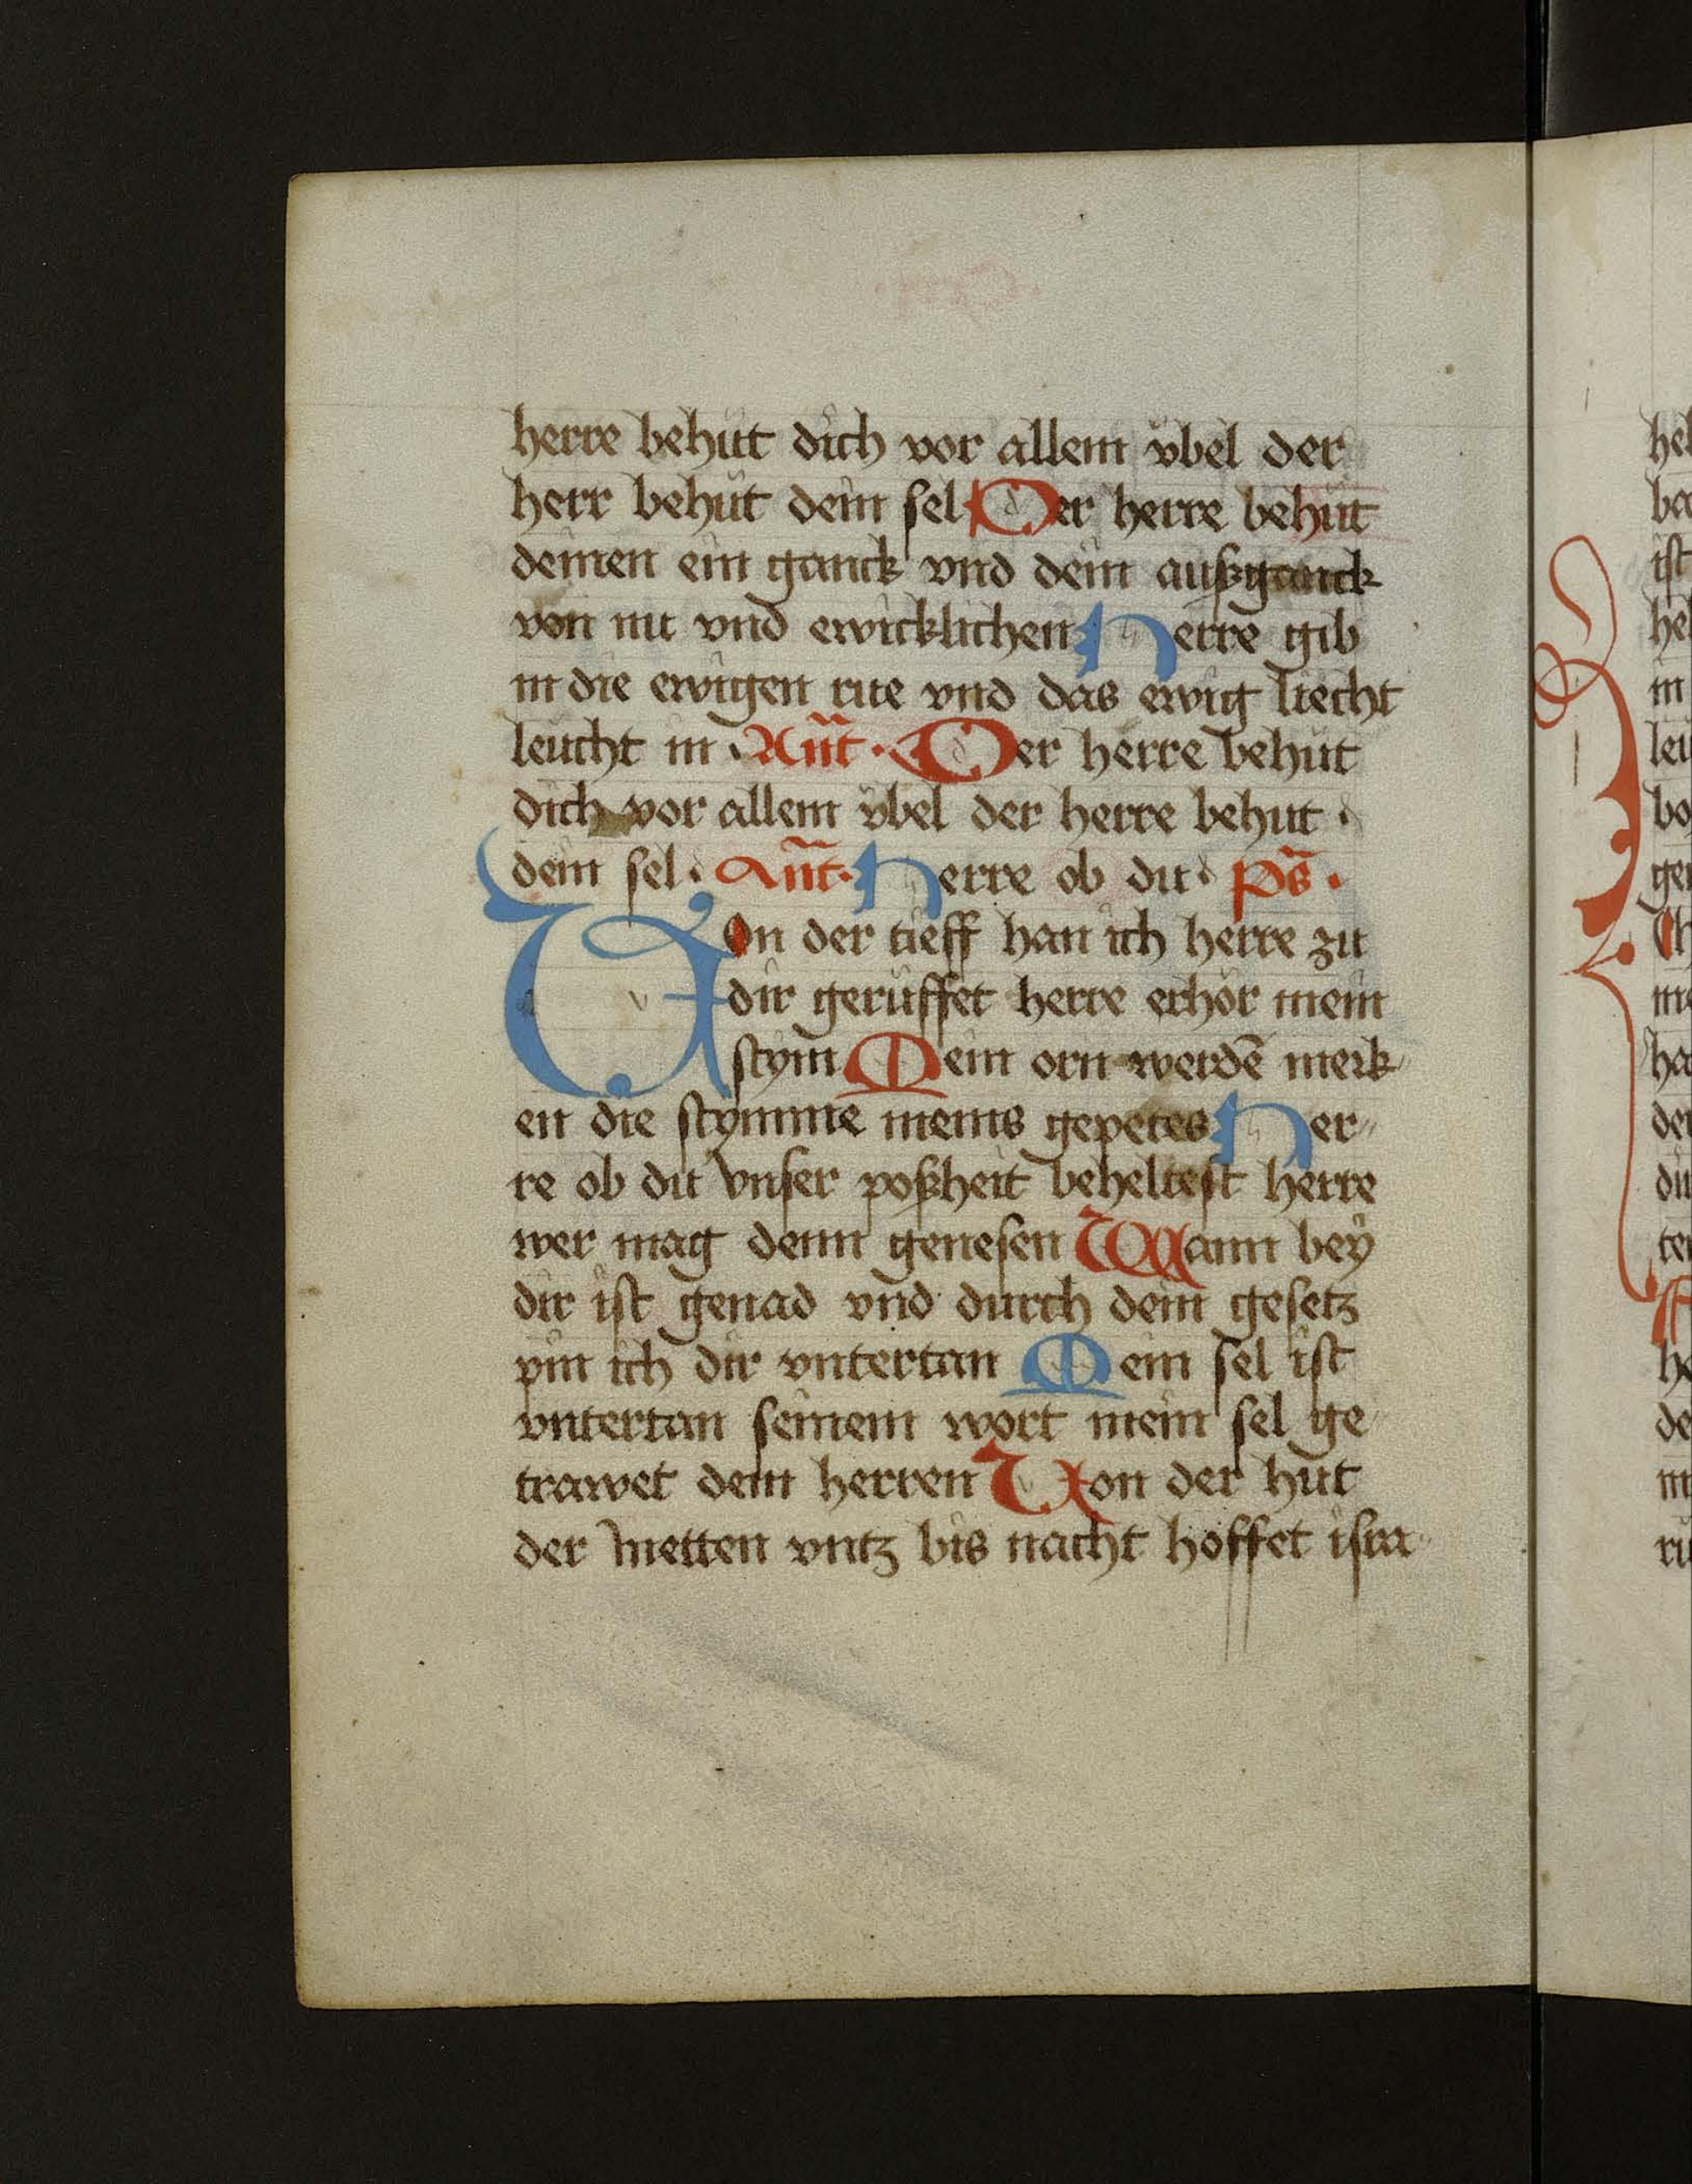 herre behüt dich vor allem vbel der
herr behüt dein sel Der herre behüt
deinen ein ganck vnd dein außganck
von nu vnd ewicklichen Herre gib
in die ewigen rue vnd das ewig liecht
leucht in · Ant̄ · Der herre behüt
dich vor allem vbel der herre behut ·
dein sel · Ant̄ · Herre ob du · ps̄ ·
VOn der tieff han ich herre zu
dir gerüffet herre erhör mein
stym Mein orn werdē merk
en die stymme meins gepetes Her
re ob du vnser poßheit beheltest herre
wer mag denn genesen Wann bey
dir ist genad vnd durch dein gesetz
pin ich dir vntertan Mein sel ist
vntertan seinem wort mein sel ge
trawet dem herren Von der hut
der metten vntz bis nacht hoffet isra